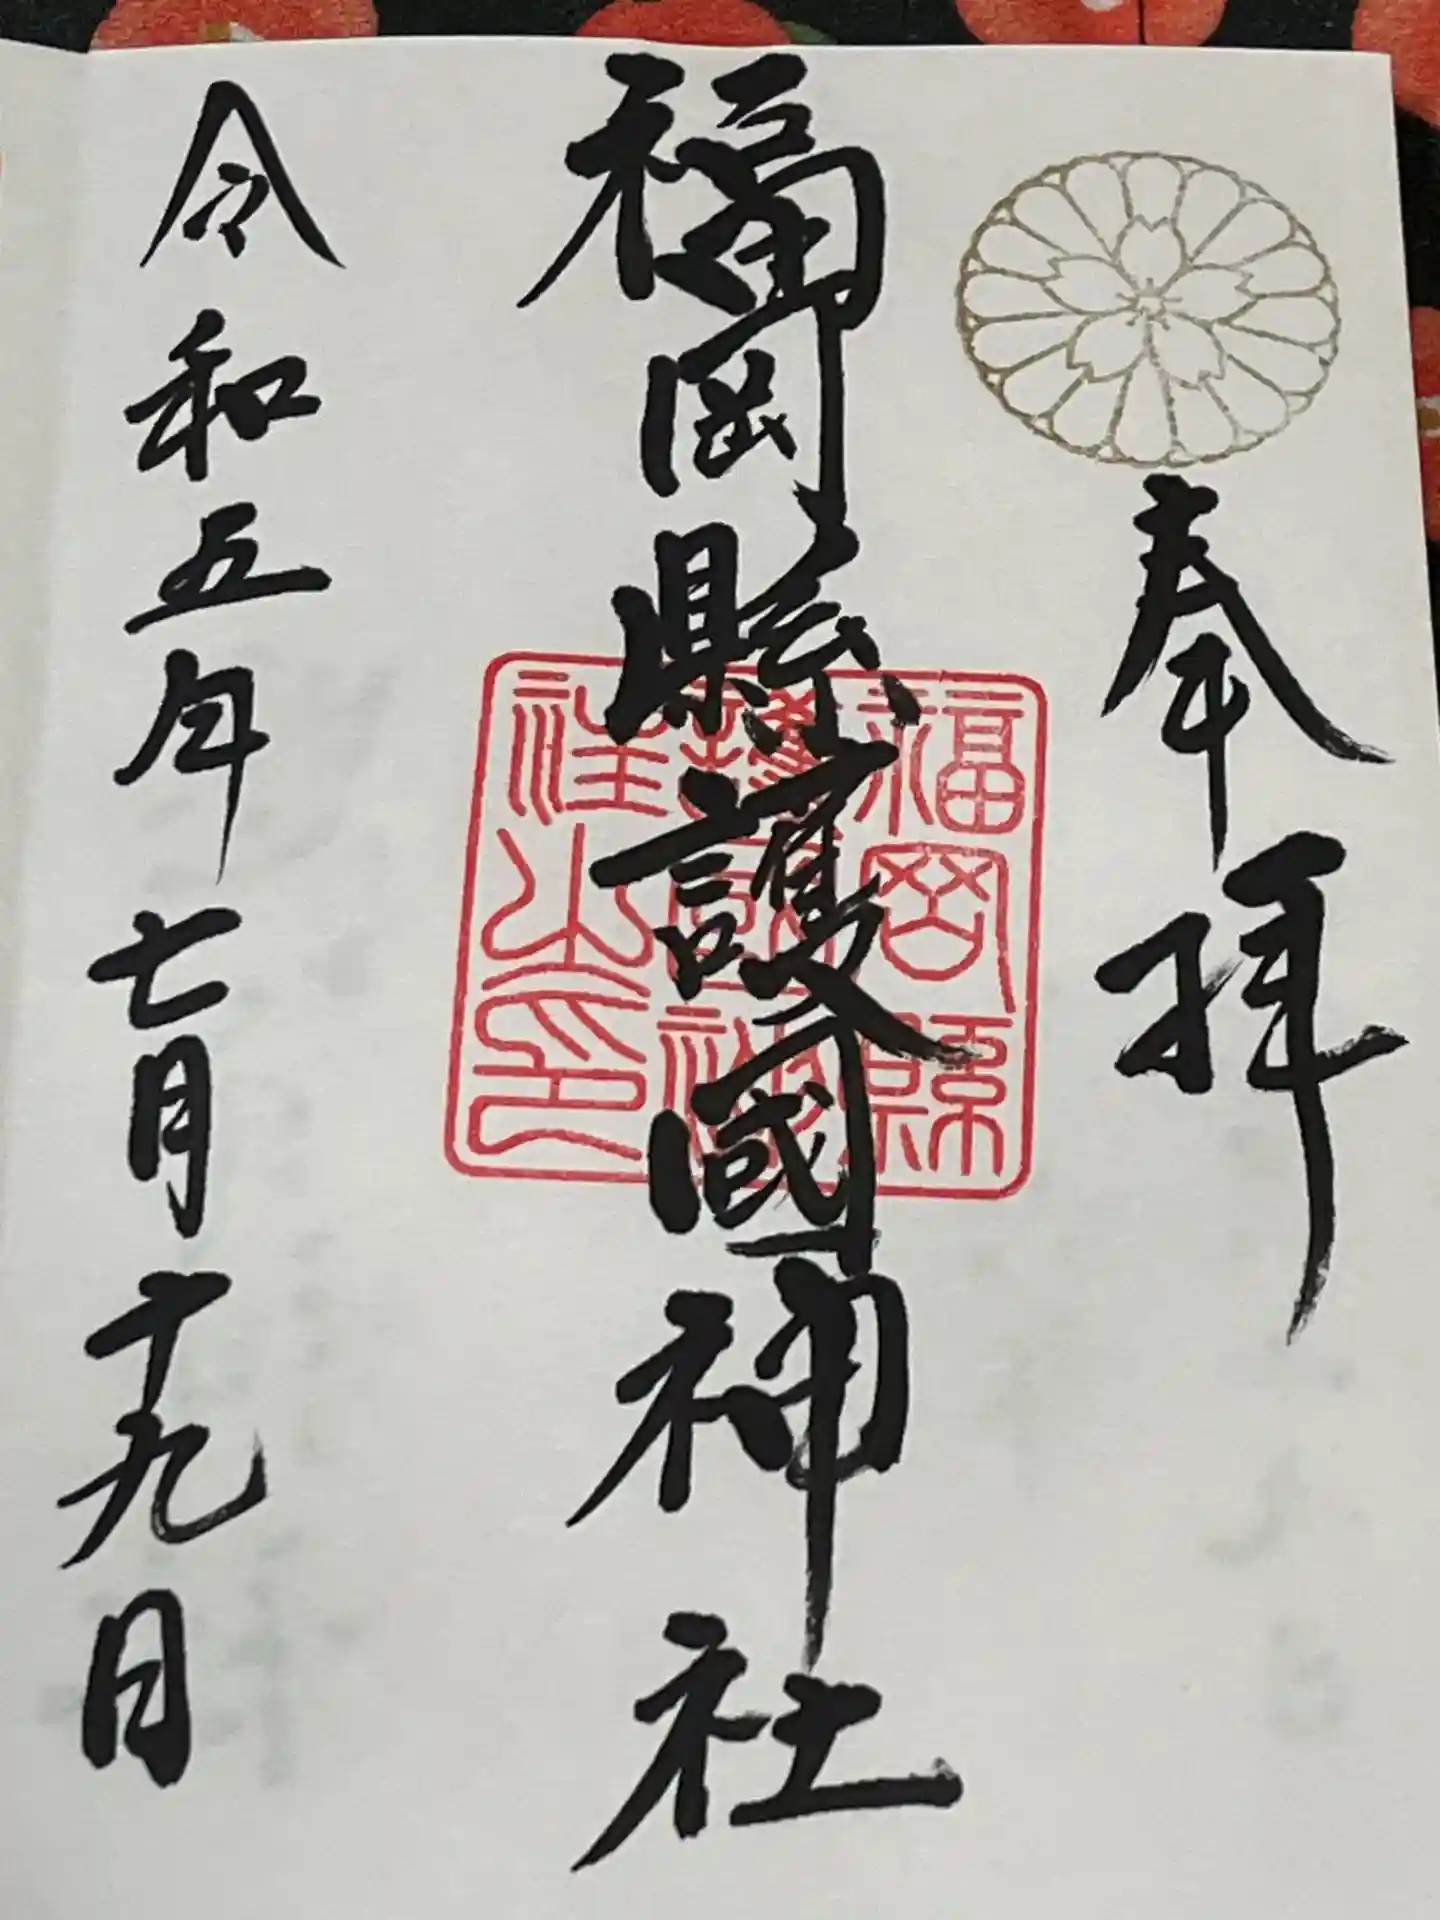 奉拝
福岡縣護國神社
福岡縣
護國神
社之印
令和五年七月十九日